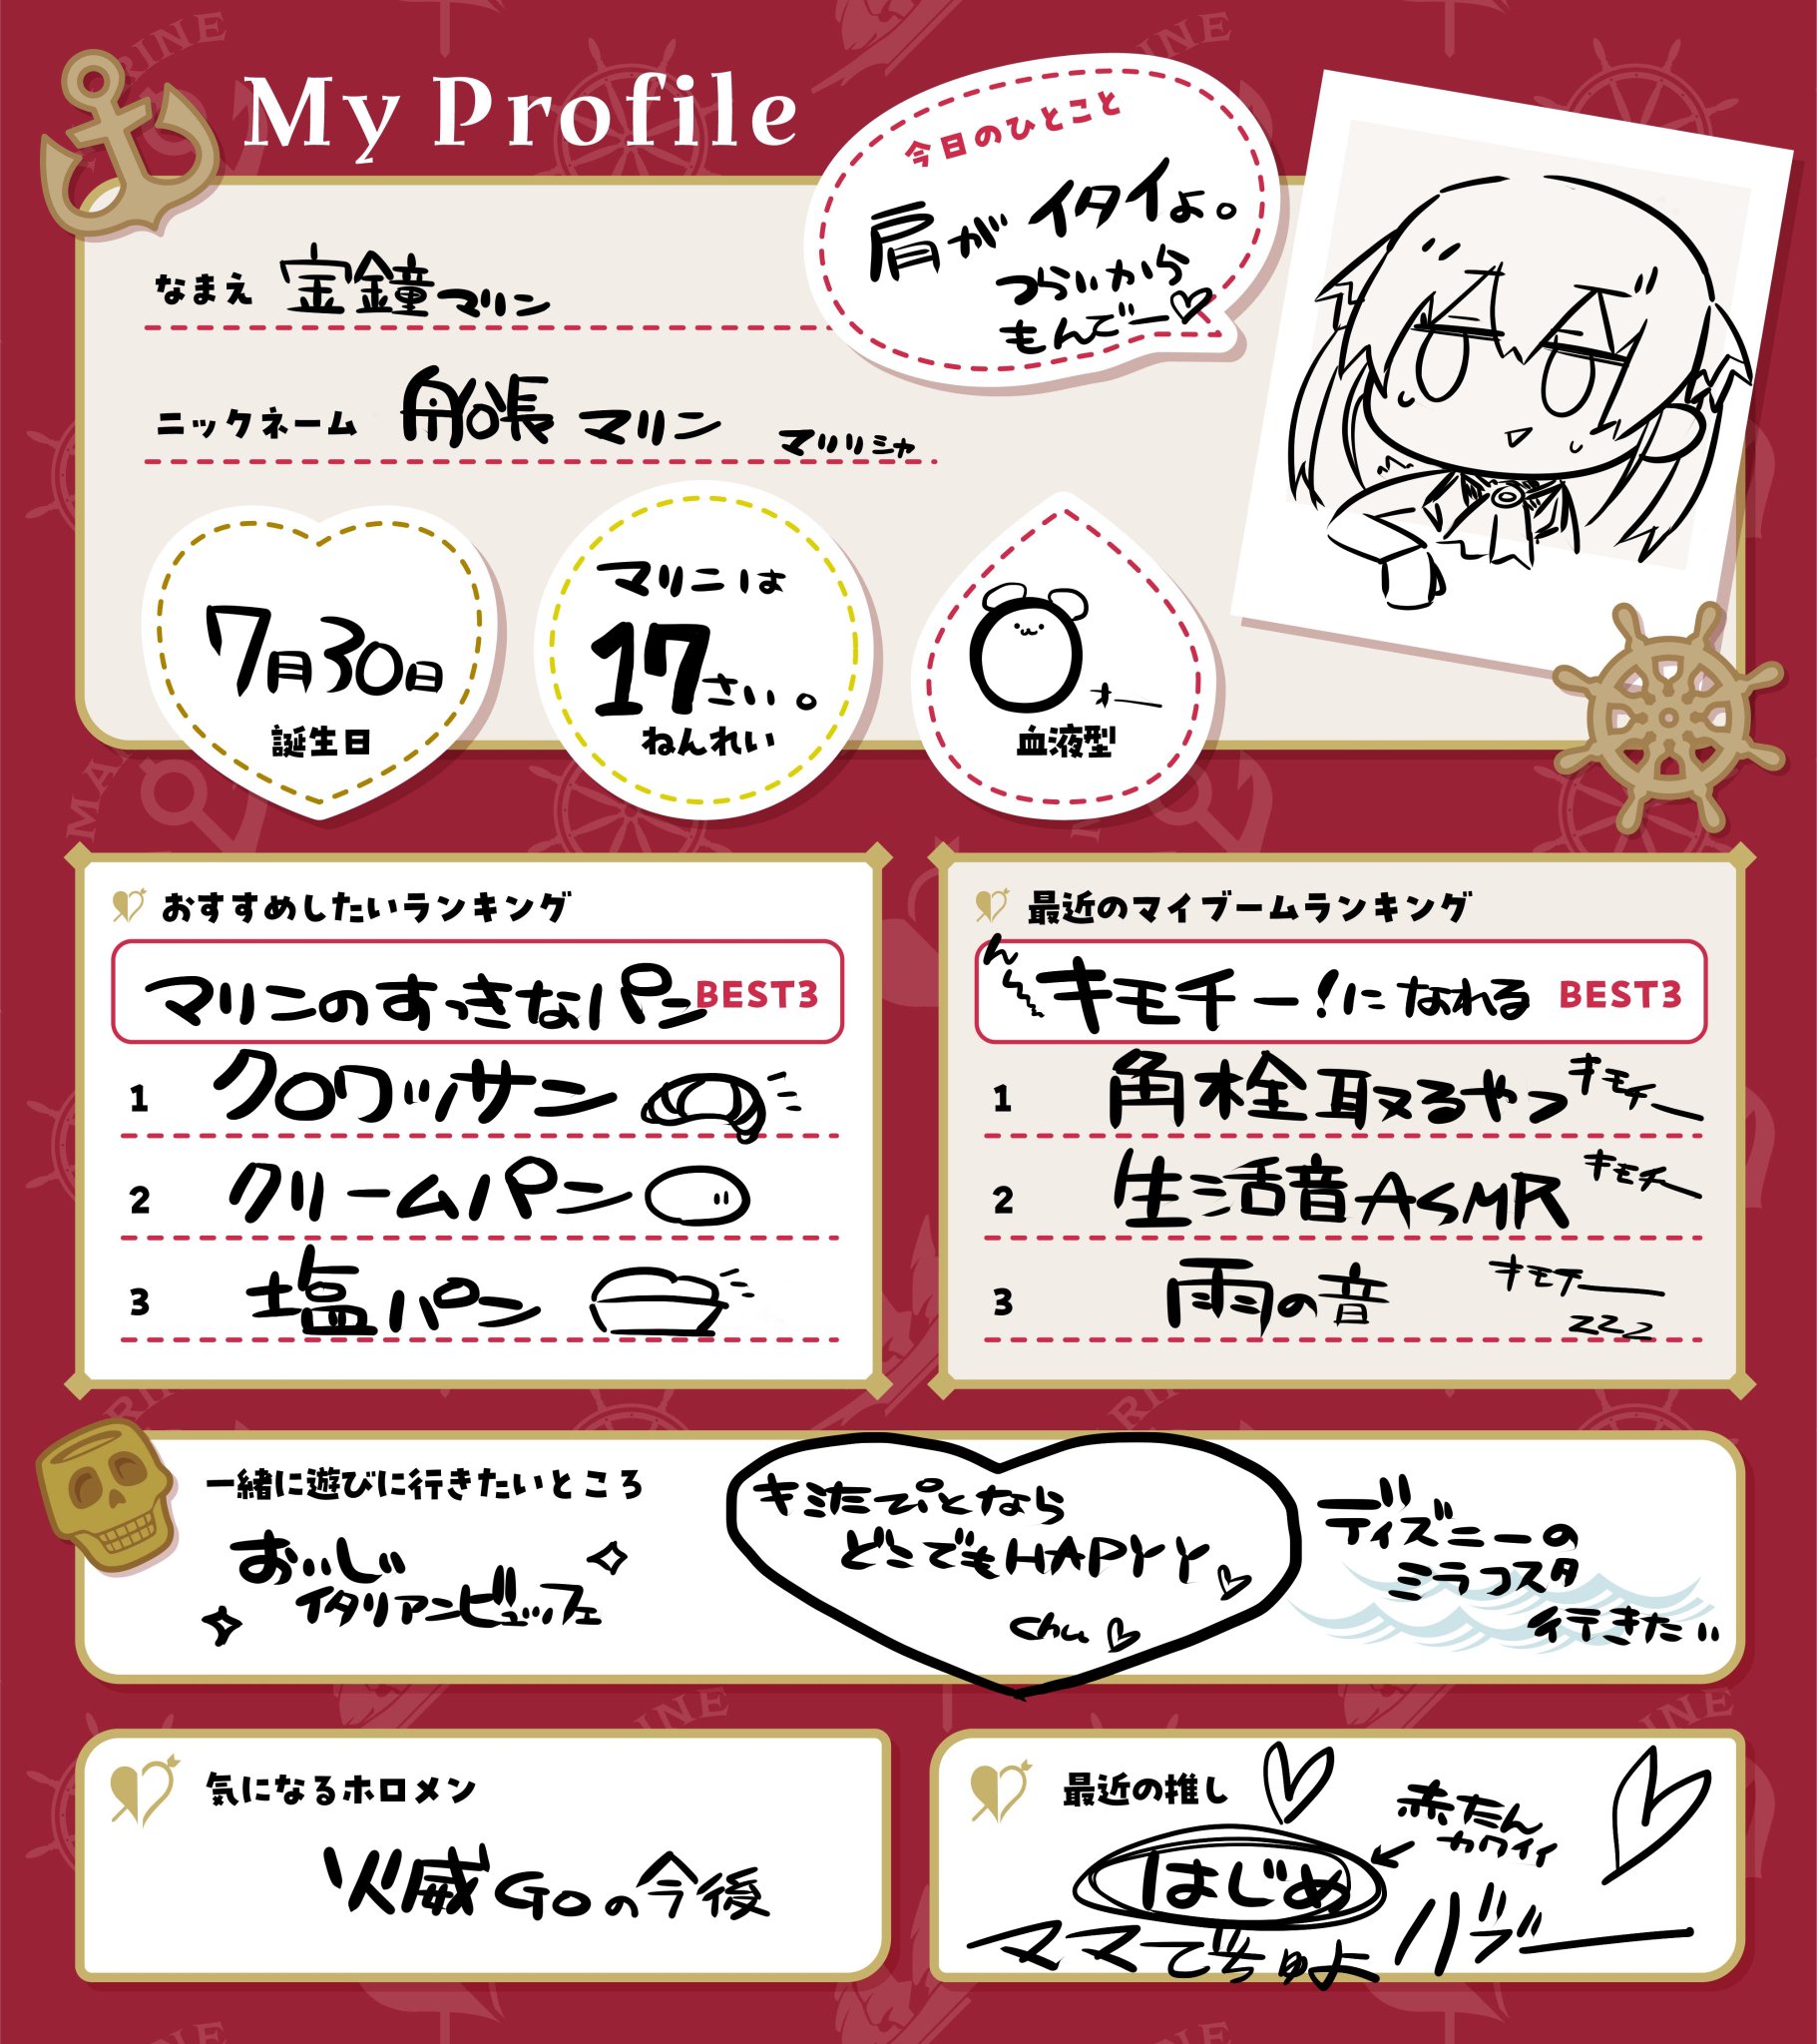 My Profile
今日のひとこと
肩がイタイよ。
つらいから
もんでー♡
なまえ 宝鐘マリン
ニックネーム 船長 マリン マリリシャ
7月30日
誕生日
マリンは
17さい。
ねんれい
オー
血液型
おすすめしたいランキング
マリンのすっきなパン BEST3
1 クロワッサン
2 クリームパン
3 塩パン
最近のマイブームランキング
ん〜キモチー!になれる BEST3
1 角栓取るやつ キモチー
2 生活音ASMR キモチー
3 雨の音 キモチー
zzz
一緒に遊びに行きたいところ
おいじ
イタリアンビュッフェ
キミたぴとなら
どこでもHAPYY♡
chu♡
ディズニーの
ミラコスタ
行きたい
気になるホロメン
火威Goの今後
最近の推し
はじめ
赤たん
カワイイ
ママでちゅよ
バブー